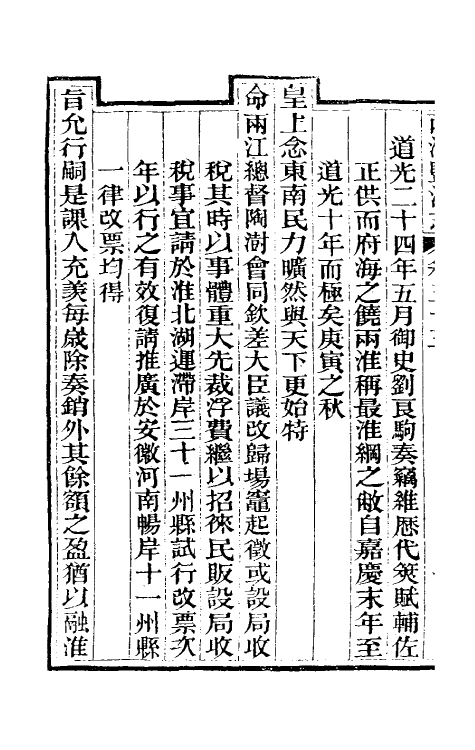 道光二十四年五月御史劉良駒奏竊維歷代筴賦輔佐
正供而府海之饒兩淮稱最淮綱之敝自嘉慶末年至
道光十年而極矣庚寅之秋
皇上念東南民力曠然與天下更始特
命兩江總督陶澍會同欽差大臣議改歸場竈起徵或設局收
稅其時以事體重大先裁浮費繼以招徠民販設局收
稅事宜請於淮北湖運滯岸三十一州縣試行改票次
年以行之有效復請推廣於安徽河南暢岸十一州縣
一律改票均得
旨允行嗣是課入充羨每歲除奏銷外其餘額之盈猶以融淮